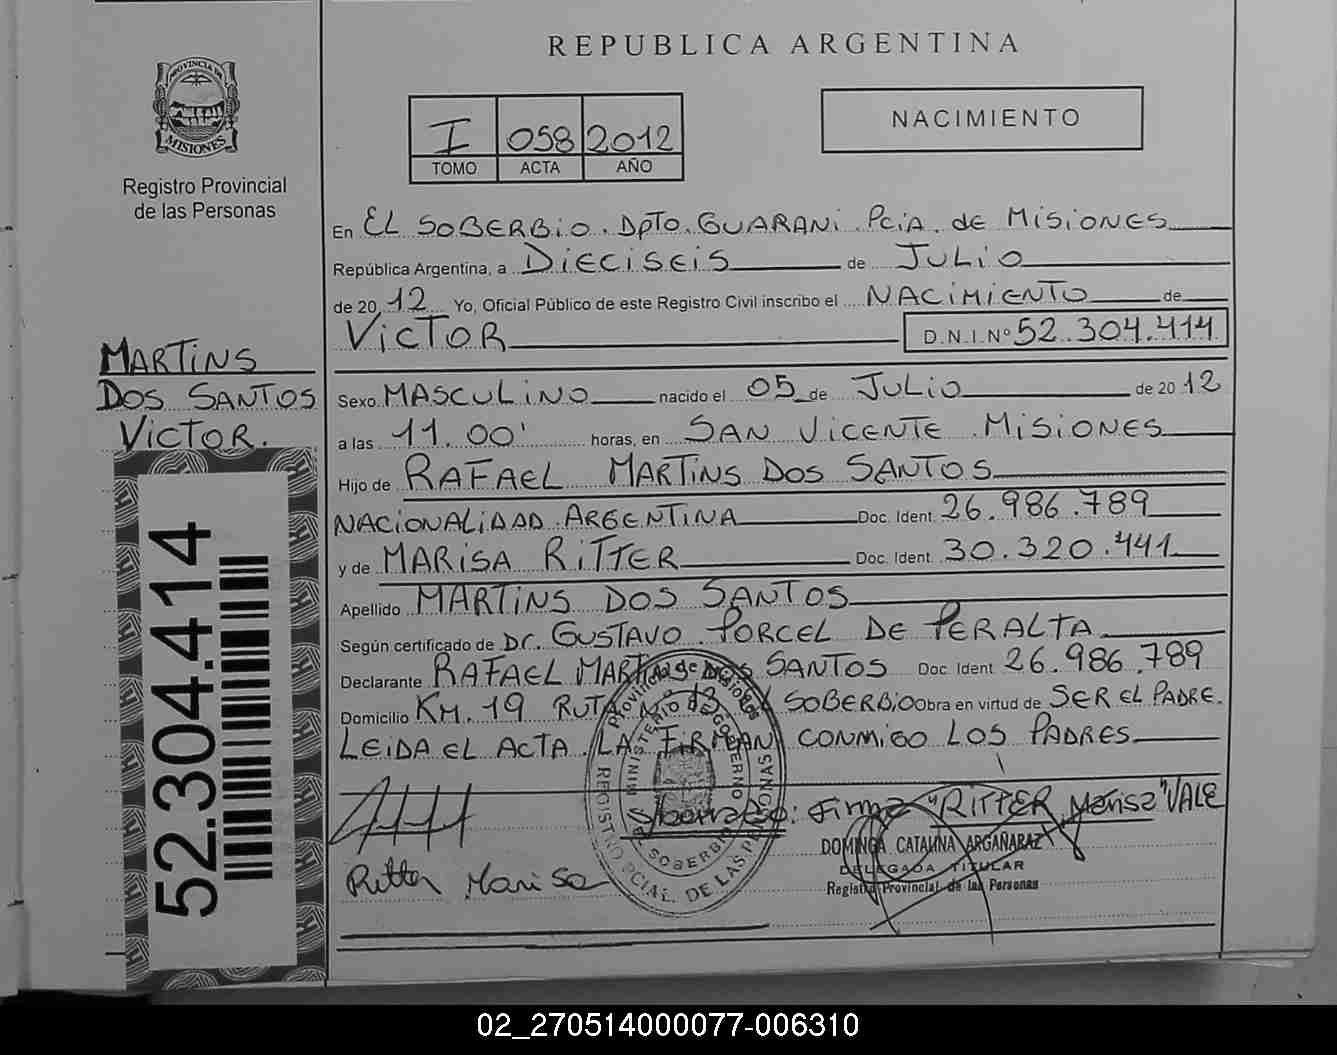 REPUBLICA ARGENTINA
PROVINCIA DE
MISIONES
Registro Provincial
de las Personas
I 058 2012
TOMO ACTA AÑO
NACIMIENTO
En EL SOBERBIO. DPTO. GUARANI. PCIA. de MISIONES
República Argentina, a DIECISEIS de JULIO
de 20 12 Yo, Oficial Público de este Registro Civil inscribo el NACIMIENTO de
VICTOR D.N.I.Nº 52.304.414
MARTINS
DOS SANTOS
VICTOR.
Sexo MASCULINO nacido el 05 de JULIO de 20 12
a las 11.00' horas, en SAN VICENTE. MISIONES
Hijo de RAFAEL MARTINS DOS SANTOS
NACIONALIDAD ARGENTINA Doc. Ident. 26.986.789
y de MARISA RITTER Doc. Ident. 30.320.441
Apellido MARTINS DOS SANTOS
Según certificado de Dr. GUSTAVO PORCEL DE PERALTA
Declarante RAFAEL MARTINS DOS SANTOS Doc. Ident 26.986.789
Domicilio KM. 19 RUTA Nº 13 EL SOBERBIO Obra en virtud de SER EL PADRE.
LEIDA EL ACTA. LA FIRMAN CONMIGO LOS PADRES
52.304.414
Provincia de Misiones
MINISTERIO DE GOBIERNO
EL SOBERBIO
REGISTRO PCIAL. DE LAS PERSONAS
Sobrerraspado: Firma "RITTER Marisa" VALE
DOMINGA CATALINA ARGAÑARAZ
DELEGADA TITULAR
Registro Provincial de las Personas
Ritter Marisa
02_270514000077-006310